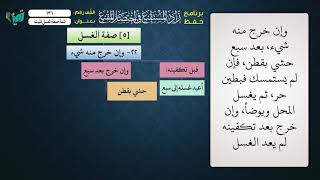 برنامج حفظ
زاد المستقنع في اختصار المقنع
المقطع رقم: ١٣١
بعنوان: تتمة صفة غسل الميت
[٥] صفة الغسل
٢٢- وإن خرج منه شيء
قبل تكفينه:
وإن خرج بعد سبع
أعيد غسله إلى سبع
حشي بقطن
وإن خرج منه
شيء، بعد سبع
حشي بقطن، فإن
لم يستمسك فبطين
حر، ثم يغسل
المحل ويوضأ، وإن
خرج بعد تكفينه
لم يعد الغسل